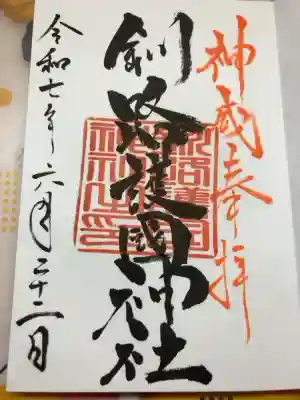 神威奉拝
釧路護國神社
令和七年六月二十二日